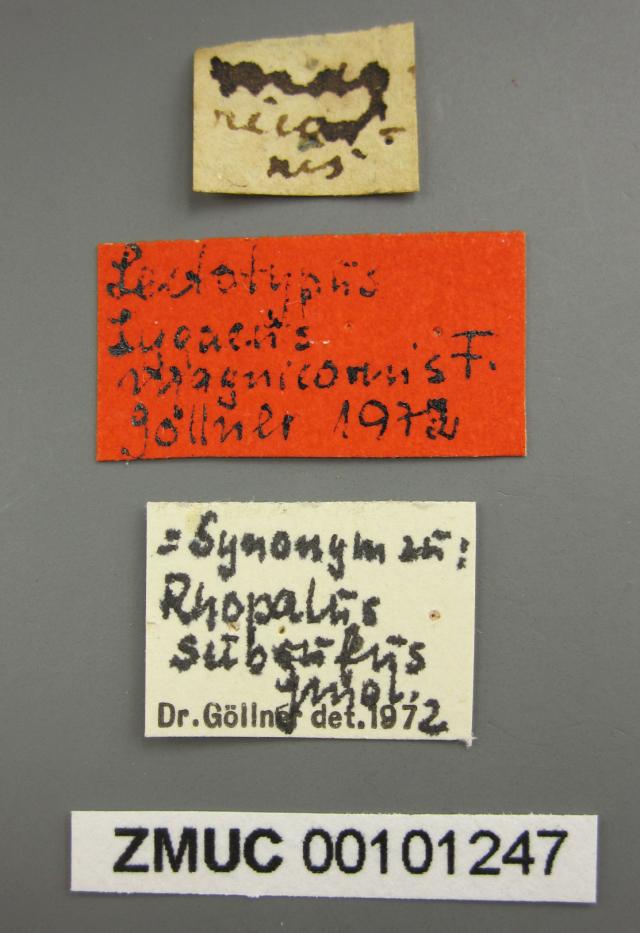 mag
nicor-
nis
Lectotypus
Lygaeus
magnicornis F.
Göllner 1972
= Synonym zu:
Rhopalus
subrufus
Gmel.
Dr. Göllner det. 1972
ZMUC 00101247